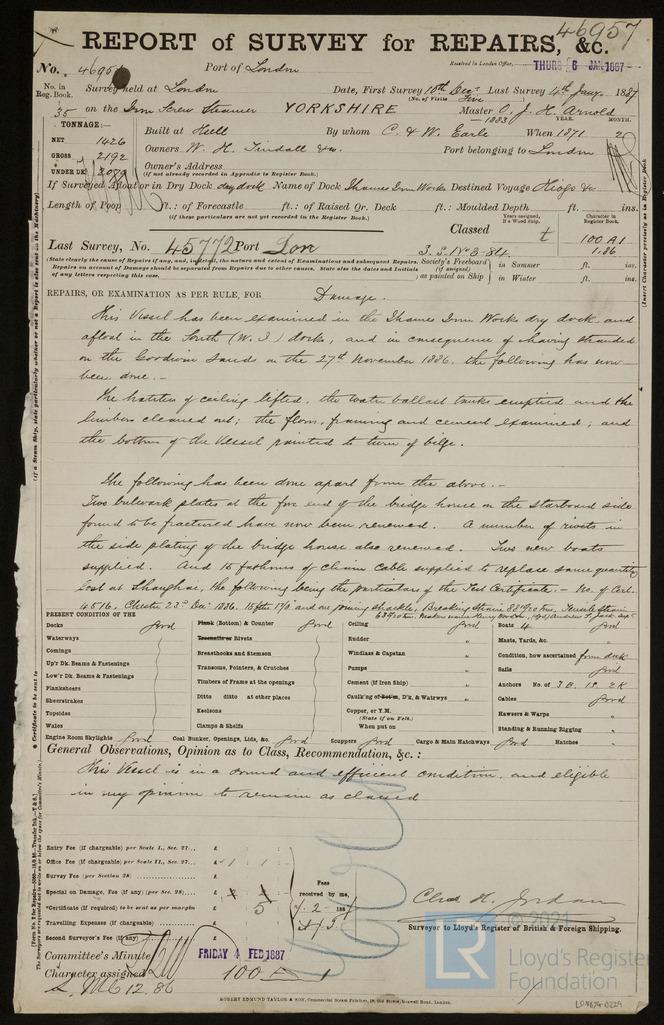 46957
REPORT of SURVEY for REPAIRS, &c.
No. 46957 Port of London Received in London Office, THURS 6 JAN 1887
No. in Reg. Book. Survey held at London Date, First Survey 10th Dec: Last Survey 4th Jany 1887
(No. of Visits Five)
35 on the Iron Screw Steamer YORKSHIRE Master O. J. H. Arnold
TONNAGE: 1883 YEAR. MONTH.
NET 1426 Built at Hull By whom C. & W. Earle When 1871 2
GROSS 2192 Owners W. H. Tindall &co. Port belonging to London
UNDER DK. 2089 Owner's Address
(if not already recorded in Appendix to Register Book.)
If Surveyed Afloat or in Dry Dock dry dock Name of Dock Thames Iron Works Destined Voyage Hiogo &c
Length of Poop ft.: of Forecastle ft.: of Raised Qr. Deck ft.: Moulded Depth ft. ins.
(if these particulars are not yet recorded in the Register Book.)
Years assigned, if a Wood Ship. Character in Register Book.
Classed 100 A1
1.86
Last Survey, No. 45772 Port Lon
(State clearly the cause of Repairs, if any, and, in detail, the nature and extent of Examinations and subsequent Repairs. Repairs on account of Damage should be separated from Repairs due to other causes. State also the dates and Initials of any letters respecting this case.)
Society's Freeboard (if assigned) as painted on Ship in Summer ft. ins.
in Winter ft. ins.
REPAIRS, OR EXAMINATION AS PER RULE, FOR Damage.
This Vessel has been examined in the Thames Iron Works dry dock and
afloat in the South (W. I.) docks, and in consequence of having stranded
on the Goodwin Sands on the 27th November 1886. the following has now
been done.-
The hatches of ceiling lifted, the water ballast tanks emptied and the
limbers cleared out; the floors, framing and cement examined; and
the bottom of the Vessel painted to turn of bilge.
The following has been done apart from the above.-
Two bulwark plates at the fore end of the bridge house on the starboard side
found to be fractured have now been renewed. A number of rivets in
the side plating of the bridge house also renewed. Two new boats
supplied. And 15 fathoms of chain cable supplied to replace same quantity
lost at Shanghai, the following being the particulars of the Test Certificate.- No. of Cert.
4516. Chester 23rd Dec: 1886. 15 fms 1 7/8 and one joining shackle, Breaking Strain 88 9/10 tons, Tensile Strain
PRESENT CONDITION OF THE
Decks Good
Waterways
Comings
Up'r Dk. Beams & Fastenings
Low'r Dk. Beams & Fastenings
Planksheers
Sheerstrakes
Topsides
Wales
Engine Room Skylights Good
Plank (Bottom) & Counter Good
Treenails or Rivets
Breasthooks and Stemson
Transoms, Pointers, & Crutches
Timbers of Frame at the openings
Ditto ditto at other places
Keelsons
Clamps & Shelfs
Coal Bunker, Openings, Lids, &c. Good
Ceiling Good
Rudder "
Windlass & Capstan "
Pumps "
Cement (if Iron Ship) "
Caulk'g of Bot'm, D'k, & Watrwys "
Copper, or Y.M.
(State if on Felt.)
When put on
Scuppers Good Cargo & Main Hatchways Good
Boats 4 Good
Masts, Yards, &c. "
Condition, how ascertained from deck
Sails Good
Anchors No. of 3 B. 1 S. 2 K
Cables Good
Hawsers & Warps "
Standing & Running Rigging "
Hatches "
General Observations, Opinion as to Class, Recommendation, &c. :
This Vessel is in a sound and efficient condition, and eligible
in my opinion to remain as classed
Entry Fee (if chargeable) per Scale I., Sec. 27... £
Office Fee (if chargeable) per Scale II., Sec. 27... £ 1 . 1 .
Survey Fee (per Section 28) £
Special on Damage, Fee (if any) (per Sec. 28) £
*Certificate (if required) to be sent as per margin £ 5
Travelling Expenses (if chargeable) £
Second Surveyor's Fee (if any) £
Fees received by me,
Chas H. Jordan
Surveyor to Lloyd's Register of British & Foreign Shipping.
Committee's Minute FRIDAY 4 FEB 1887
Character assigned 100 A 1
L.M.C 12.86
ROBERT EDMUND TAYLOR & SON, Commercial Steam Printers, 19, Old Street, Goswell Road, London.
© 2021
LR Lloyd's Register
Foundation
LON674-0229